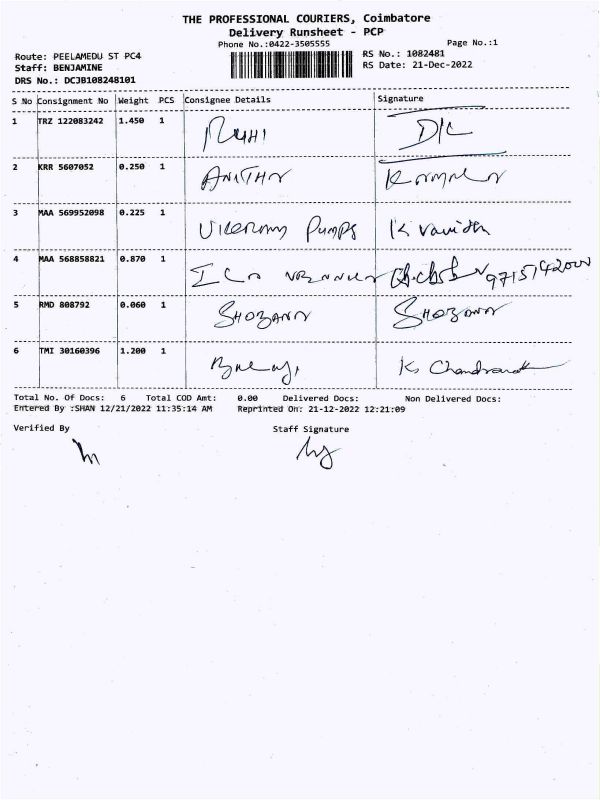 THE PROFESSIONAL COURIERS, Coimbatore
Delivery Runsheet - PCP
Phone No.:0422-3505555 Page No.:1
Route: PEELAMEDU ST PC4 RS No.: 1082481
Staff: BENJAMINE RS Date: 21-Dec-2022
DRS No.: DCJB108248101
S No Consignment No Weight PCS Consignee Details Signature
1 TRZ 122083242 1.450 1 D/C
2 KRR 5607052 0.250 1
3 MAA 569952098 0.225 1 Pumps K
4 MAA 568858821 0.870 1
5 RMD 808792 0.060 1 SHOBANA SHOBANA
6 TMI 30160396 1.200 1 K
Total No. Of Docs: 6 Total COD Amt: 0.00 Delivered Docs: Non Delivered Docs:
Entered By :SHAN 12/21/2022 11:35:14 AM Reprinted On: 21-12-2022 12:21:09
Verified By Staff Signature